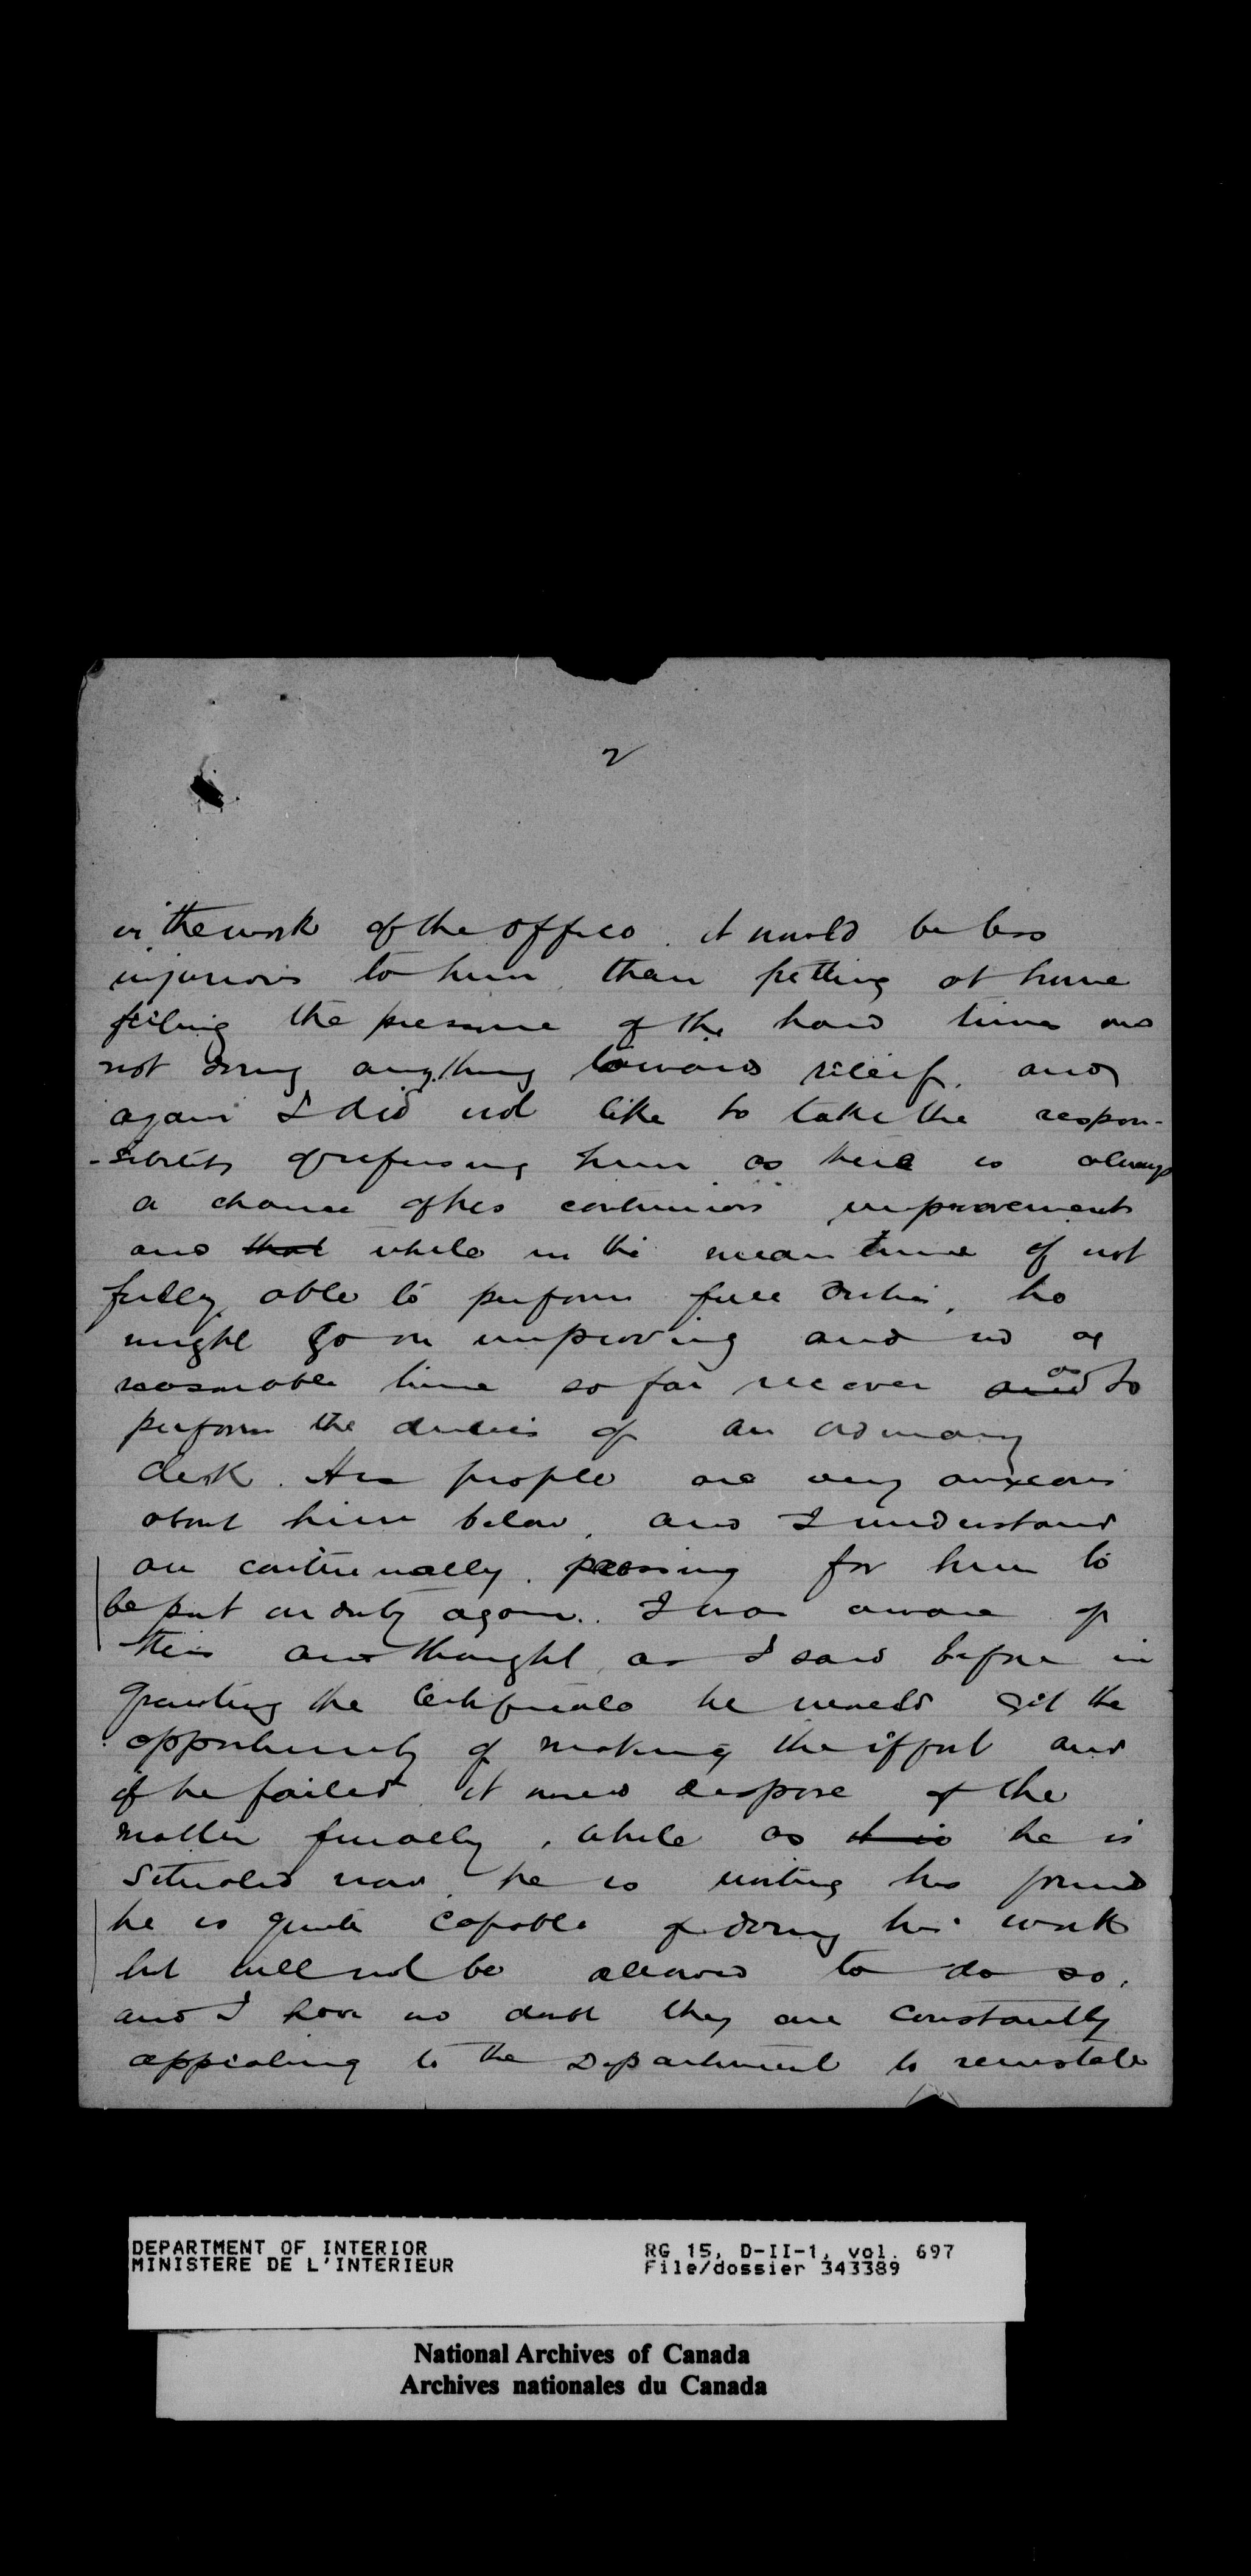 2
in the work of the office. it would be less
injurious to him than fretting at home
feeling the pressure of the hard times and
not doing anything towards releif. and
again I did not like to take the respon-
-sibility of refusing him as there is always
a chance of his continuous improvement
and that while in the mean time if not
fully able to perform full duties, he
might go on improving and in a
reasonable time so far recover and as to
perform the duties of an ordinary
clerk. His people are very anxious
about him below, and I understand
are continually pressing for him to
be put on duty again. I was aware of
this and thought as I said before in
granting the Certificate he would get the
opportunity of making the effort and
if he failed it would dispose of the
matter finally, while as it is he is
situated now, he is writing his friends
he is quite capable of doing his work
but will not be allowed to do so,
and I have no doubt they are constantly
appealing to the Department to reinstate
DEPARTMENT OF INTERIOR RG 15, D-II-1, vol. 697
MINISTERE DE L'INTERIEUR File/dossier 343389
National Archives of Canada
Archives nationales du Canada